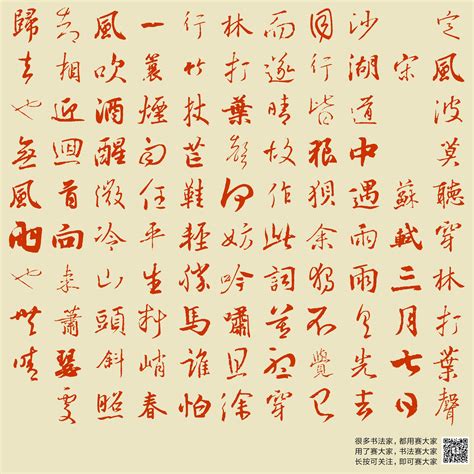 定風波莫聽穿林打葉聲
宋 蘇軾三月七日
沙湖道中遇雨雨具先去
同行皆狼狽余獨不覺已
而遂晴故作此詞莫聽穿
林打葉聲何妨吟嘯且徐
行竹杖芒鞋輕勝馬誰怕
一蓑煙雨任平生料峭春
風吹酒醒微冷山頭斜照
却相迎迴首向來蕭瑟處
歸去也無風雨也無晴
很多书法家，都用赛大家
用了赛大家，书法赛大家
长按可关注，即可赛大家